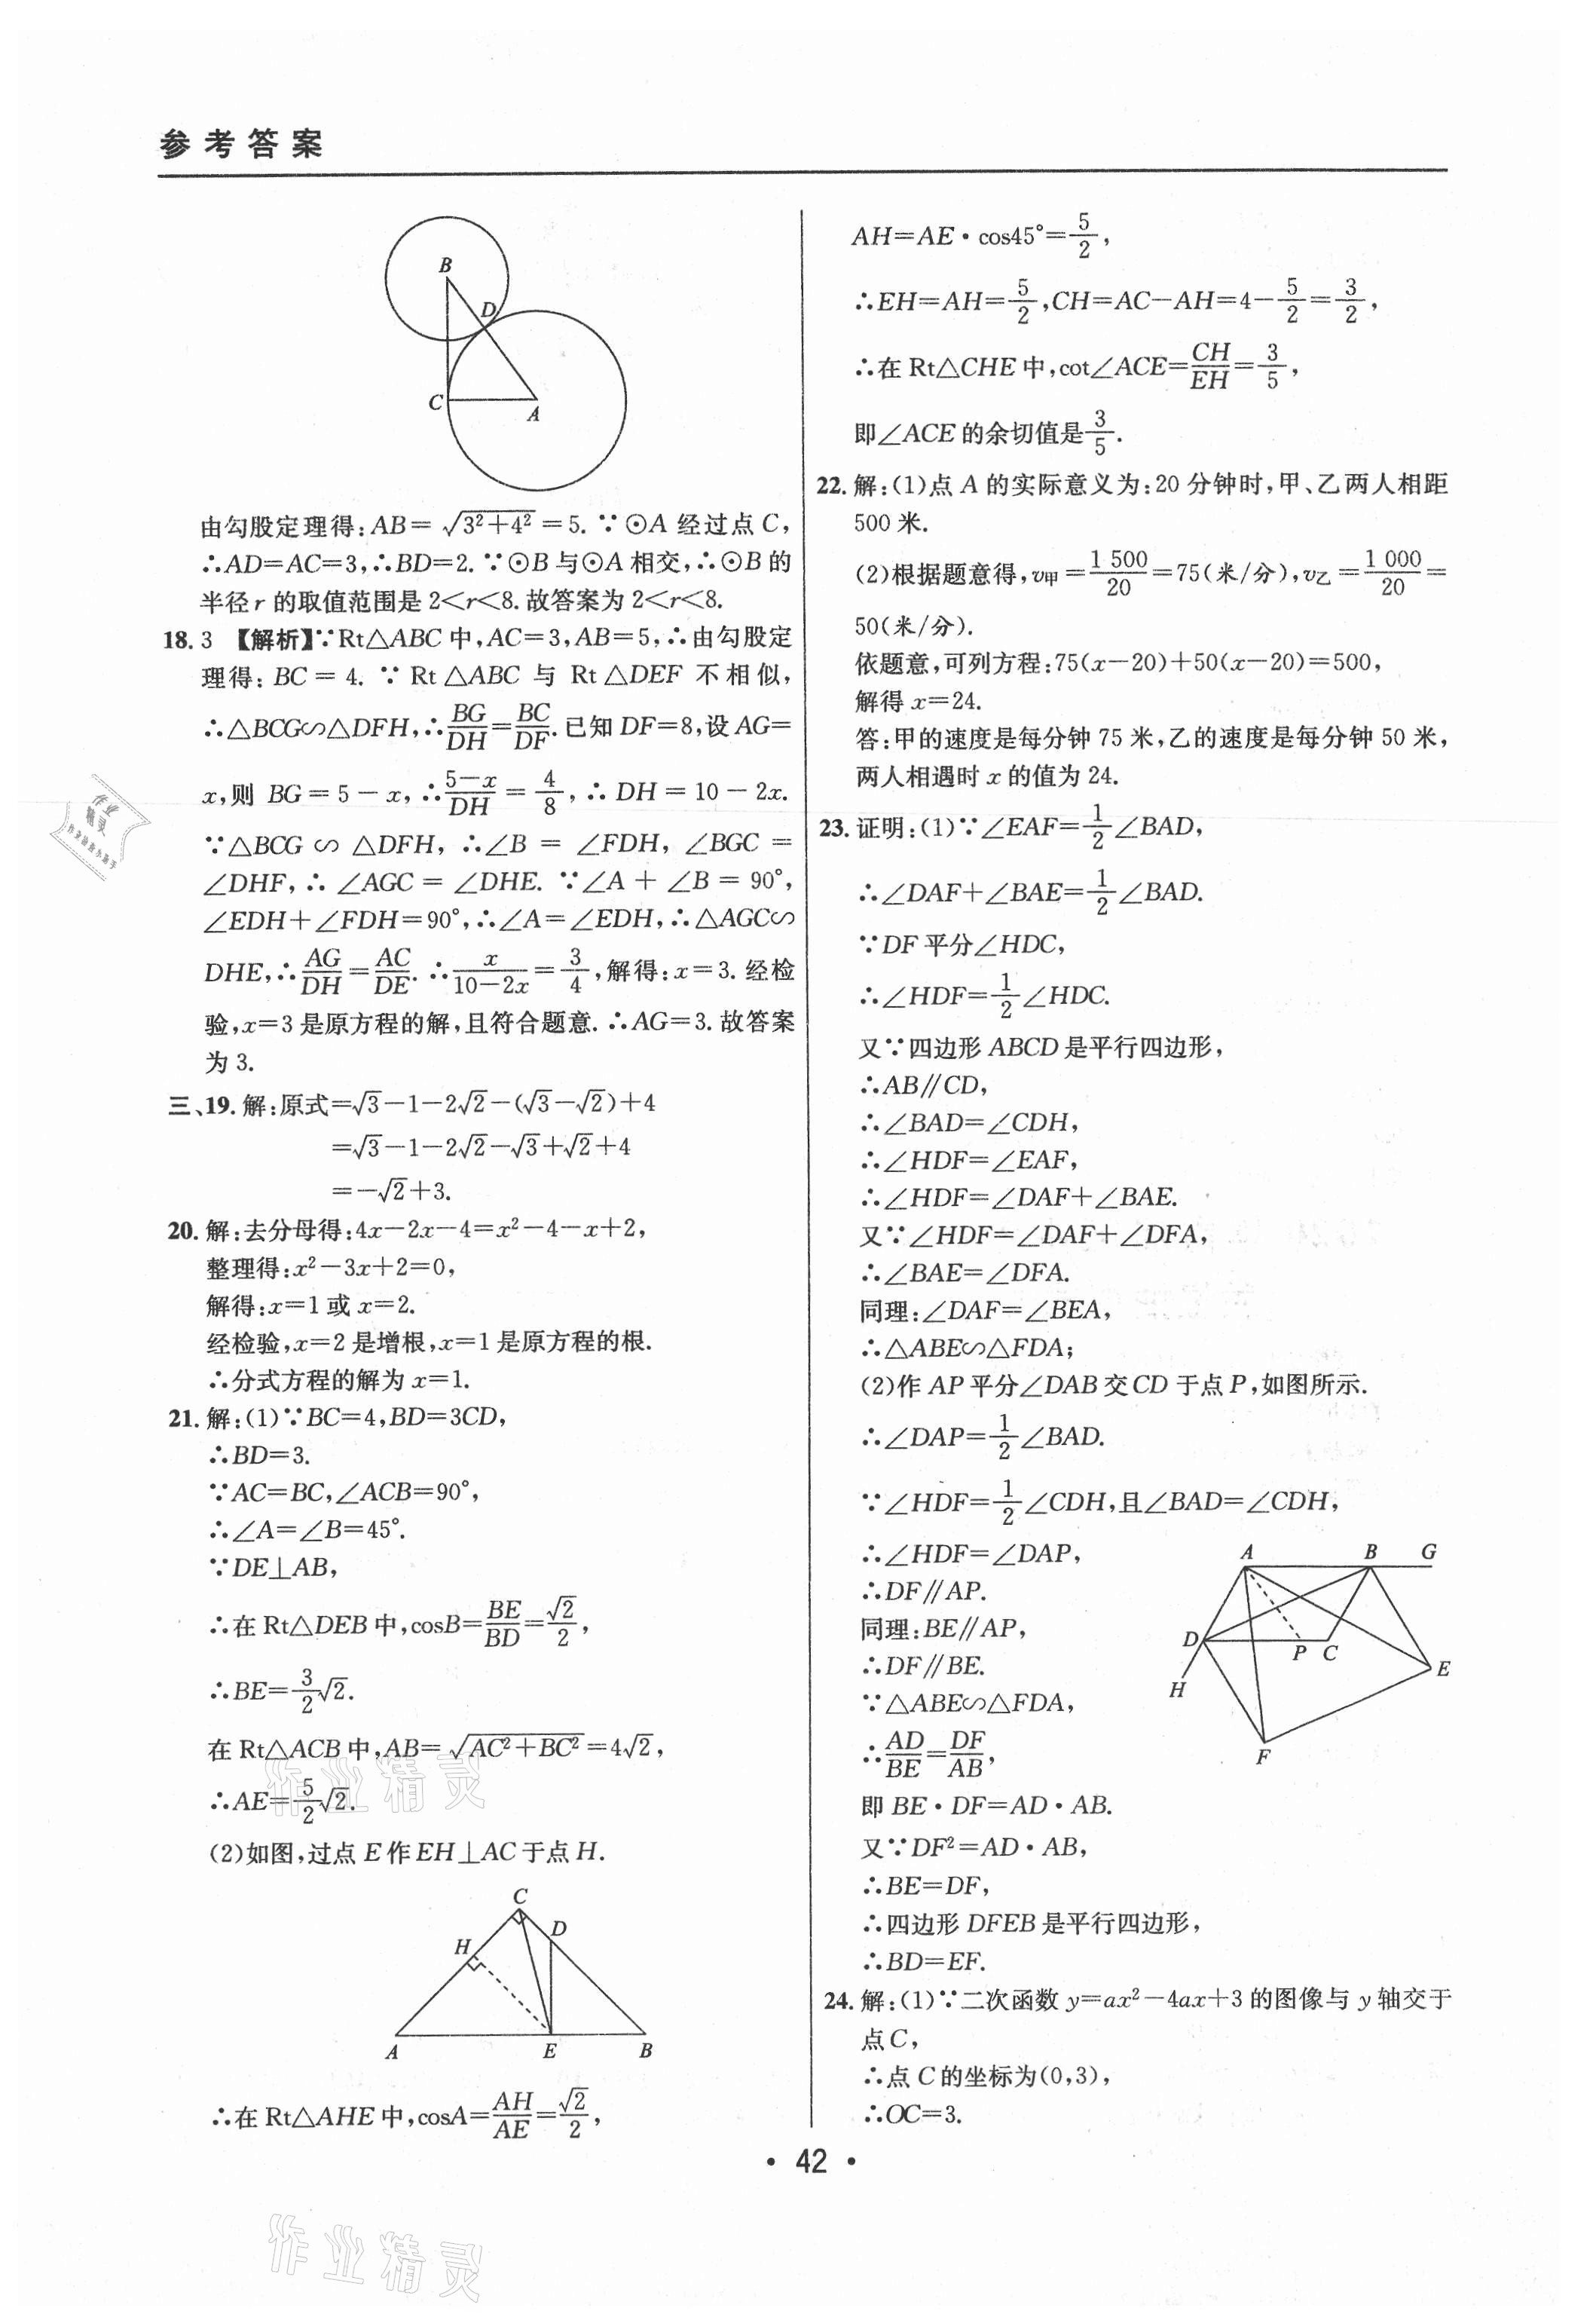 参考答案
B
D
C
A
由勾股定理得:AB=√(3²+4²)=5.∵⊙A 经过点 C,
∴AD=AC=3,∴BD=2.∵⊙B 与⊙A 相交,∴⊙B 的
半径 r 的取值范围是 2<r<8.故答案为 2<r<8.
18. 3 【解析】∵Rt△ABC 中,AC=3,AB=5,∴由勾股定
理得: BC = 4. ∵ Rt △ABC 与 Rt △DEF 不相似,
∴△BCG∽△DFH,∴BG/DH=BC/DF.已知 DF=8,设 AG=
x,则 BG=5-x,∴(5-x)/DH=4/8,∴DH=10-2x.
∵△BCG ∽ △DFH, ∴∠B = ∠FDH, ∠BGC =
∠DHF,∴ ∠AGC = ∠DHE. ∵∠A + ∠B = 90°,
∠EDH+∠FDH=90°,∴∠A=∠EDH,∴△AGC∽
DHE,∴AG/DH=AC/DE.∴x/(10-2x)=3/4,解得:x=3.经检
验,x=3 是原方程的解,且符合题意.∴AG=3.故答案
为 3.
三、19. 解:原式=√3-1-2√2-(√3-√2)+4
=√3-1-2√2-√3+√2+4
=-√2+3.
20. 解:去分母得:4x-2x-4=x²-4-x+2,
整理得:x²-3x+2=0,
解得:x=1 或 x=2.
经检验,x=2 是增根,x=1 是原方程的根.
∴分式方程的解为 x=1.
21. 解:(1)∵BC=4,BD=3CD,
∴BD=3.
∵AC=BC,∠ACB=90°,
∴∠A=∠B=45°.
∵DE⊥AB,
∴在 Rt△DEB 中,cosB=BE/BD=√2/2,
∴BE=3/2√2.
在 Rt△ACB 中,AB=√(AC²+BC²)=4√2,
∴AE=5/2√2.
(2)如图,过点 E 作 EH⊥AC 于点 H.
C
D
H
A
E
B
∴在 Rt△AHE 中,cosA=AH/AE=√2/2,
AH=AE·cos45°=5/2,
∴EH=AH=5/2,CH=AC-AH=4-5/2=3/2,
∴在 Rt△CHE 中,cot∠ACE=CH/EH=3/5,
即∠ACE 的余切值是3/5.
22. 解:(1)点 A 的实际意义为:20 分钟时,甲、乙两人相距
500 米.
(2)根据题意得,v甲=1 500/20=75(米/分),v乙=1 000/20=
50(米/分).
依题意,可列方程:75(x-20)+50(x-20)=500,
解得 x=24.
答:甲的速度是每分钟 75 米,乙的速度是每分钟 50 米,
两人相遇时 x 的值为 24.
23. 证明:(1)∵∠EAF=1/2∠BAD,
∴∠DAF+∠BAE=1/2∠BAD.
∵DF 平分∠HDC,
∴∠HDF=1/2∠HDC.
又∵四边形 ABCD 是平行四边形,
∴AB∥CD,
∴∠BAD=∠CDH,
∴∠HDF=∠EAF,
∴∠HDF=∠DAF+∠BAE.
又∵∠HDF=∠DAF+∠DFA,
∴∠BAE=∠DFA.
同理:∠DAF=∠BEA,
∴△ABE∽△FDA;
(2)作 AP 平分∠DAB 交 CD 于点 P,如图所示.
∴∠DAP=1/2∠BAD.
∵∠HDF=1/2∠CDH,且∠BAD=∠CDH,
∴∠HDF=∠DAP,
∴DF∥AP.
同理:BE∥AP,
∴DF∥BE.
∵△ABE∽△FDA,
∴AD/BE=DF/AB,
即 BE·DF=AD·AB.
又∵DF²=AD·AB,
∴BE=DF,
∴四边形 DFEB 是平行四边形,
∴BD=EF.
A
B
G
D
P
C
E
H
F
24. 解:(1)∵二次函数 y=ax²-4ax+3 的图像与 y 轴交于
点 C,
∴点 C 的坐标为(0,3),
∴OC=3.
· 42 ·
作业精灵
作业精灵
作业精灵